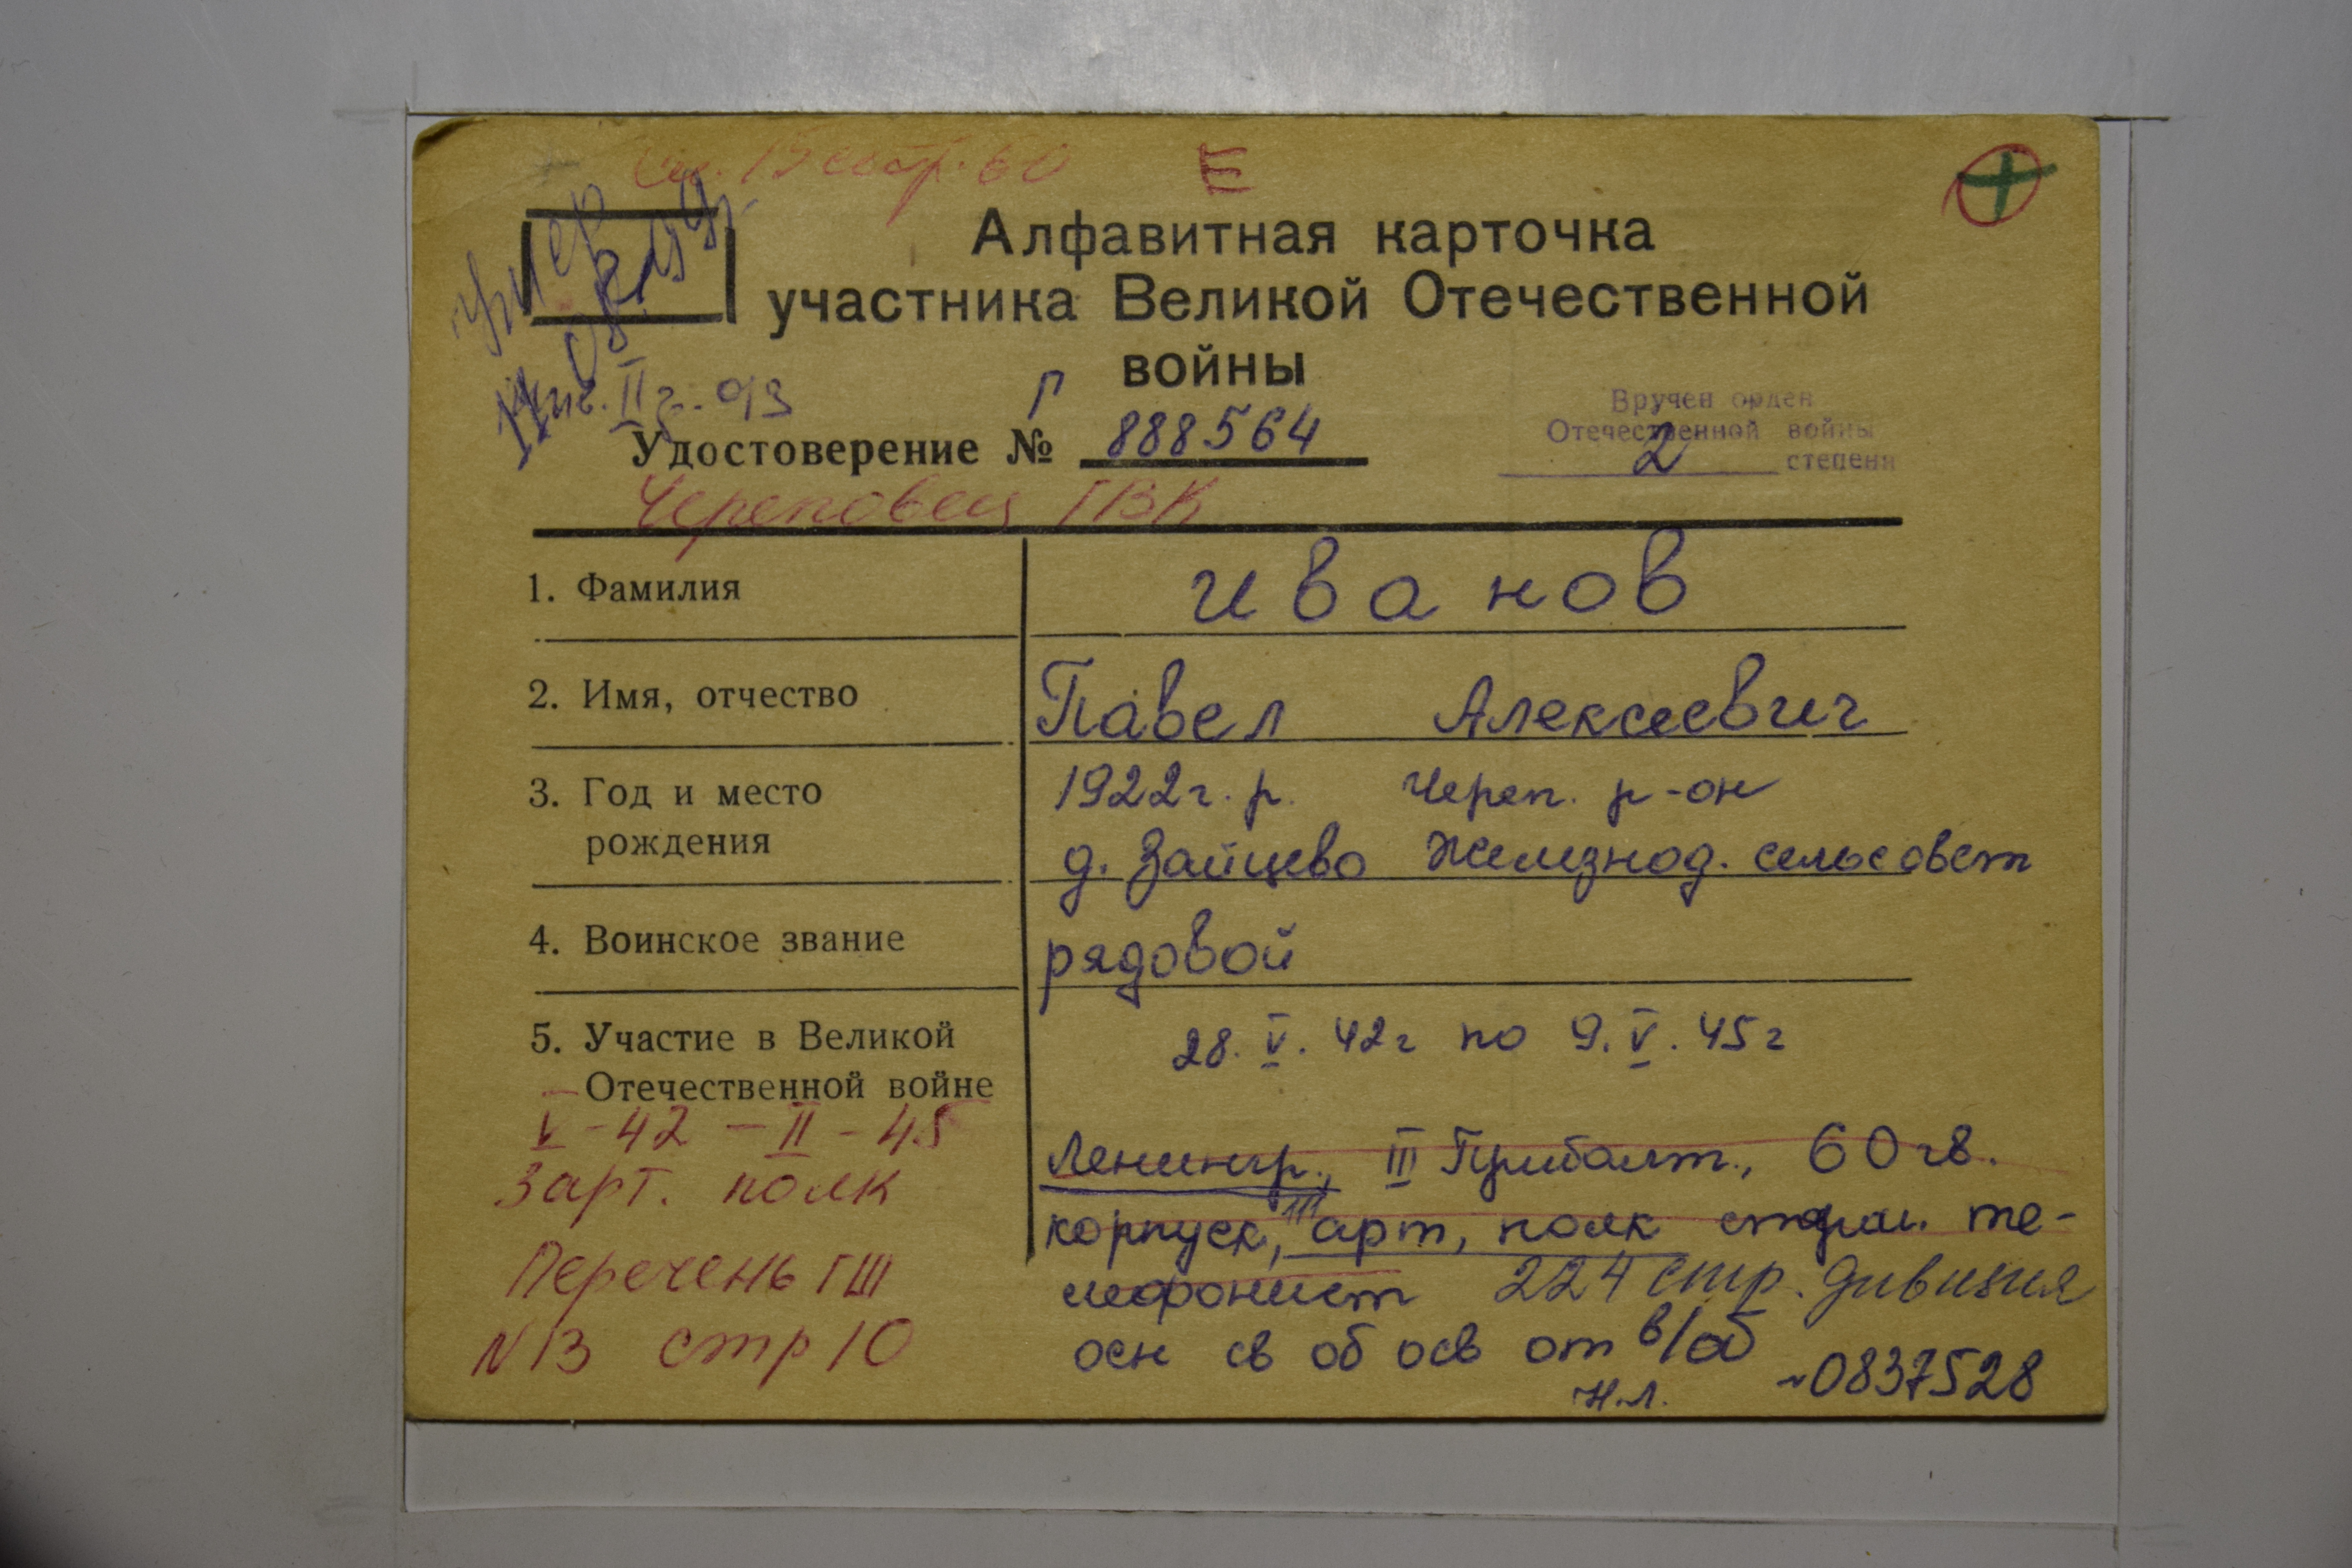 стр. 60
Е
Алфавитная карточка
участника Великой Отечественной
войны
умер
08.
II
Г
Удостоверение № 888564
Вручен орден
Отечественной войны
2 степени
Череповец ГВК
1. Фамилия иванов
2. Имя, отчество Павел Алексеевич
3. Год и место 1922г. р. Череп. р-он
рождения д. Зайцево Железнод. сельсовет
4. Воинское звание рядовой
5. Участие в Великой 28. V. 42г по 9. V. 45г
Отечественной войне
V - 42 - II - 45
Ленингр., III Прибалт., 60 гв.
3 арт. полк
корпуск, 111 арт, полк старш. те-
Перечень ГШ
лефонист 224 стр. дивизия
N 13 стр 10
осн св об осв от в/об
н.л. 0837528